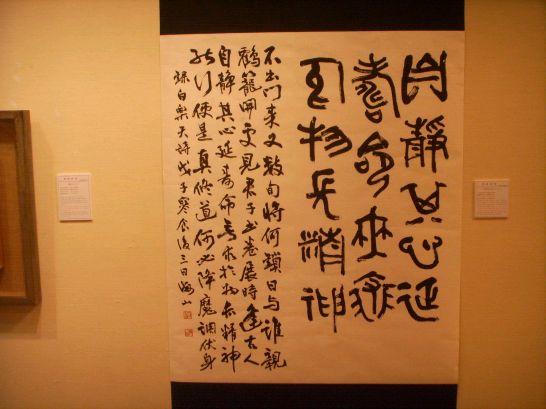 自靜其心延
壽命無求
於物長精神
不出門来又数旬将何銷日与誰親
鶴籠開處見君子書卷展時逢古人
自静其心延壽命無求於物長精神
能行便是真修道何必降魔調伏身
錄白樂天詩戊子寒食後三日海山